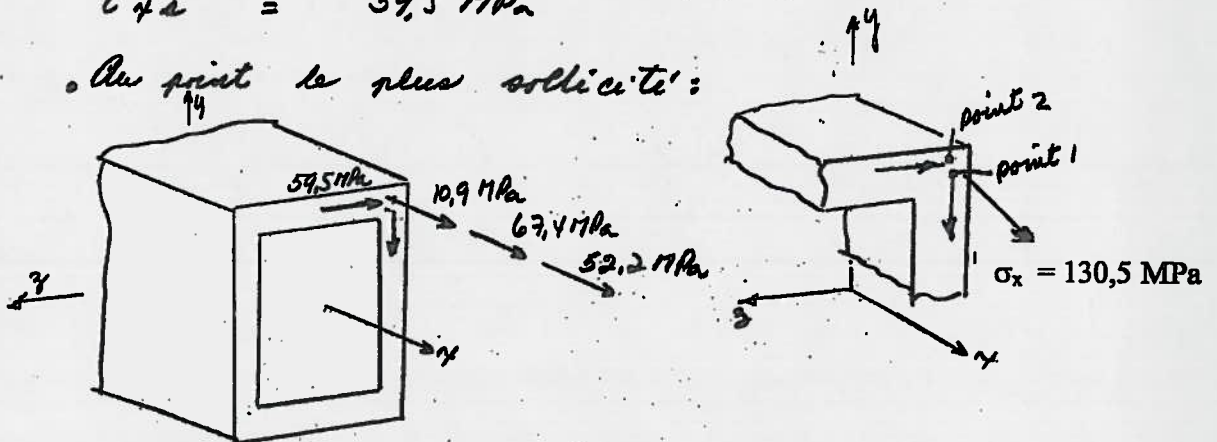 τxs = 59,5 MPa
• Au point le plus sollicité :
y
59,5 MPa
10,9 MPa
67,4 MPa
52,2 MPa
z
x
y
point 2
point 1
σx = 130,5 MPa
z
x